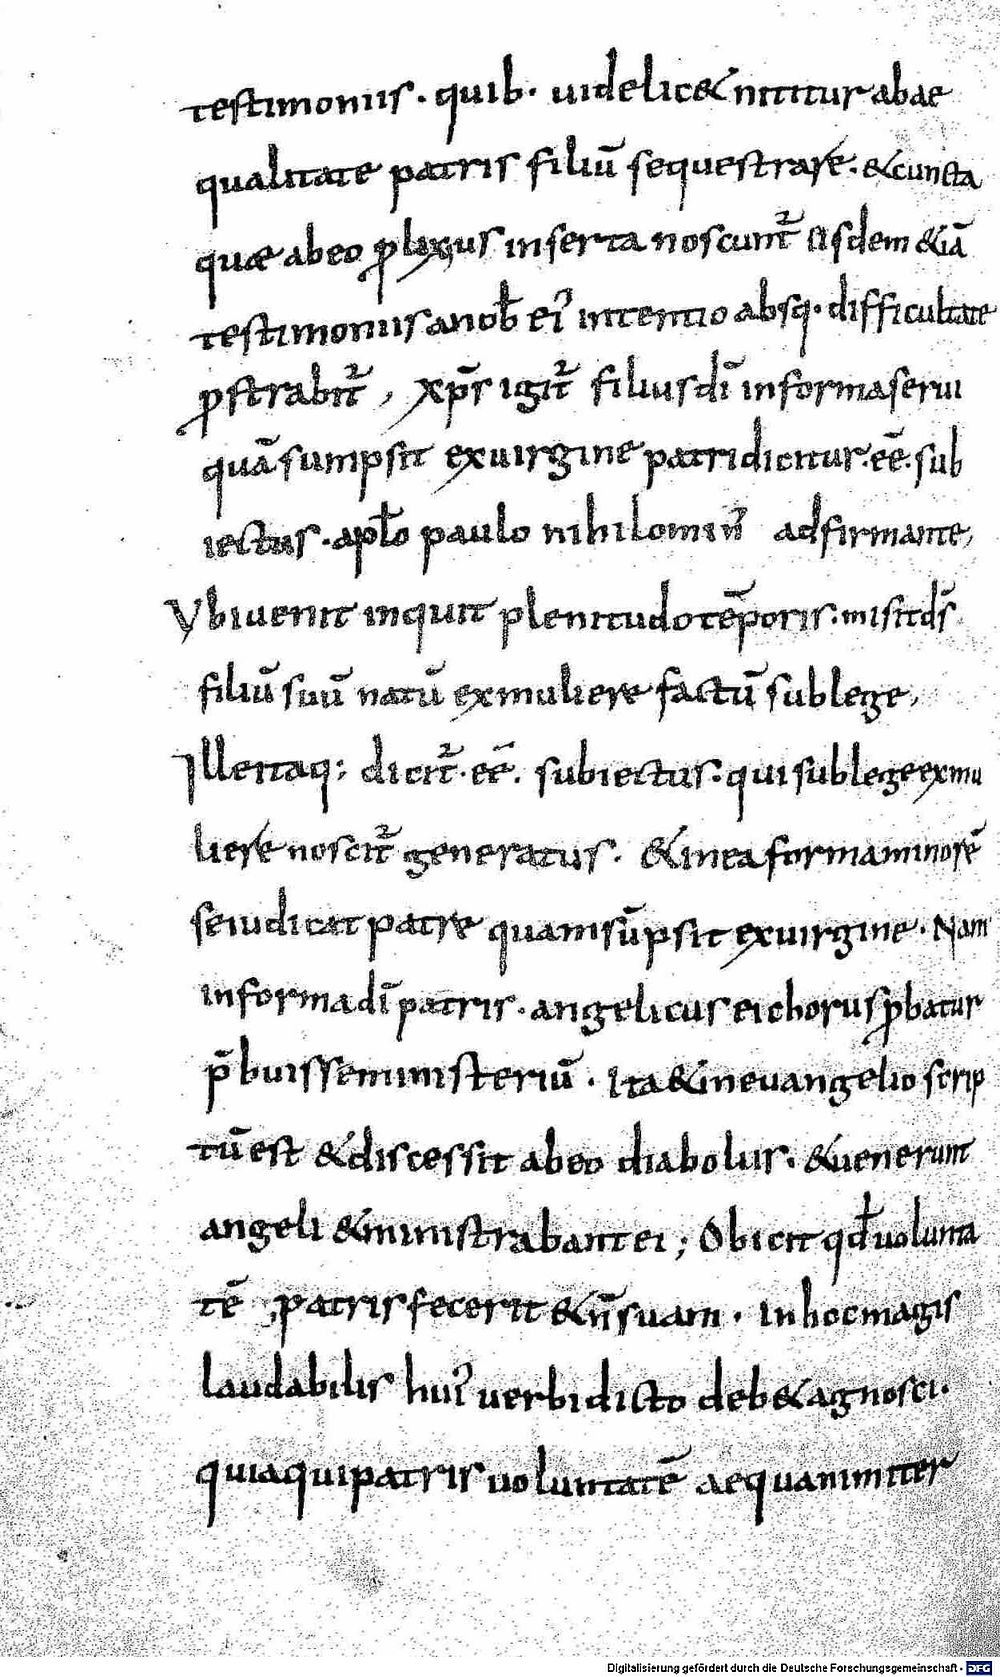 testimoniis · quib · uidelic& nititur abae
qualitate patris filiū sequestrare · & cuncta
quae ab eo ꝓlixius inserta noscunt᷑ iisdem & iā
testimoniis a nob̄ ei᾽ intentio absq · difficultate
ꝓstrabit᷑, xp̄s igit᷑ filius dī in forma serui
quā sumpsit ex uirgine patri dicitur · eē · sub
iectus · apƚo paulo nihilomin᾽ adfirmante,
Ubi uenit inquit plenitudo tēporis · misit ds̄
filiū suū natū ex muliere factū sub lege,
Ille itaq; dicit᷑ · eē · subiectus · qui sub lege ex mu
liere noscit᷑ generatus · & in ea forma minorē
se iudicat patre quam sūpsit ex uirgine · Nam
in forma dī patris · angelicus ei chorus ꝓbatur
p̄buisse ministeriū · Ita & in euangelio scrip
tū est & discessit ab eo diabolus · & uenerunt
angeli & ministrabant ei; Obicit qđ uolunta
tē patris fecerit & n̄ suam · in hoc magis
laudabilis hui᾽ uerbi dicto deb& agnosci ·
quia qui patris uoluntatē aequanimiter
Digitalisierung gefördert durch die Deutsche Forschungsgemeinschaft - DFG